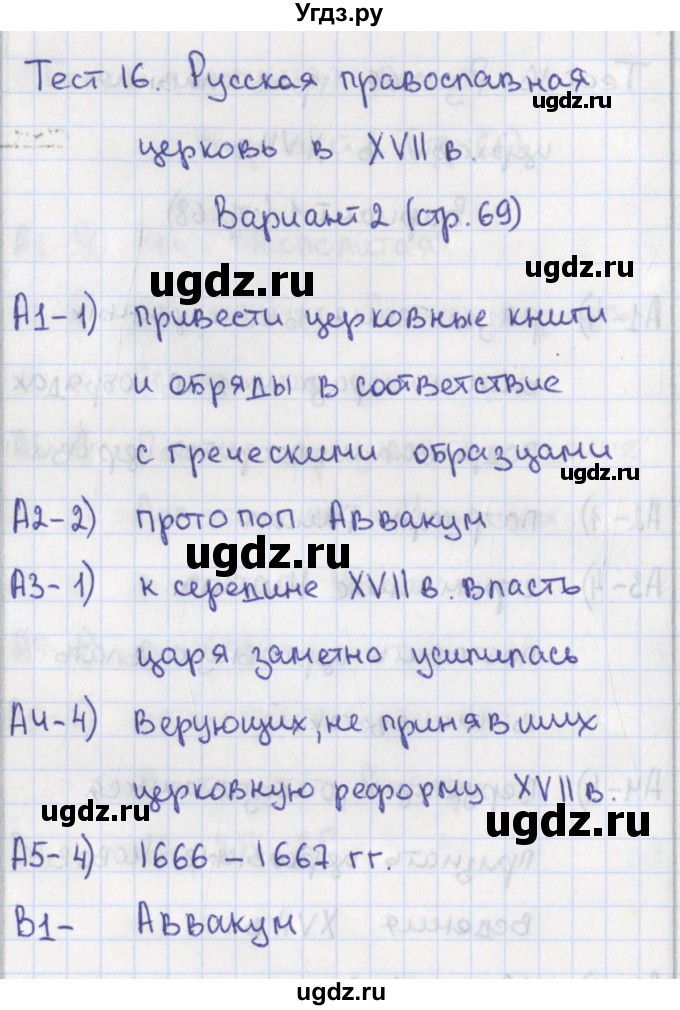 Угдз.ру
Тест 16. Русская православная
ugdz.ru
церковь в XVII в.
Вариант 2 (стр. 69)
ugdz.ru
ugdz.ru
А1-1) привести церковные книги
и обряды в соответствие
с греческими образцами
ugdz.ru
А2-2) протопоп Аввакум
ugdz.ru
А3-1) к середине XVII в. власть
царя заметно усилилась
А4-4) верующих, не принявших
церковную реформу XVII в.
ugdz.ru
ugdz.ru
А5-4) 1666 - 1667 гг.
В1- Аввакум
ugdz.ru